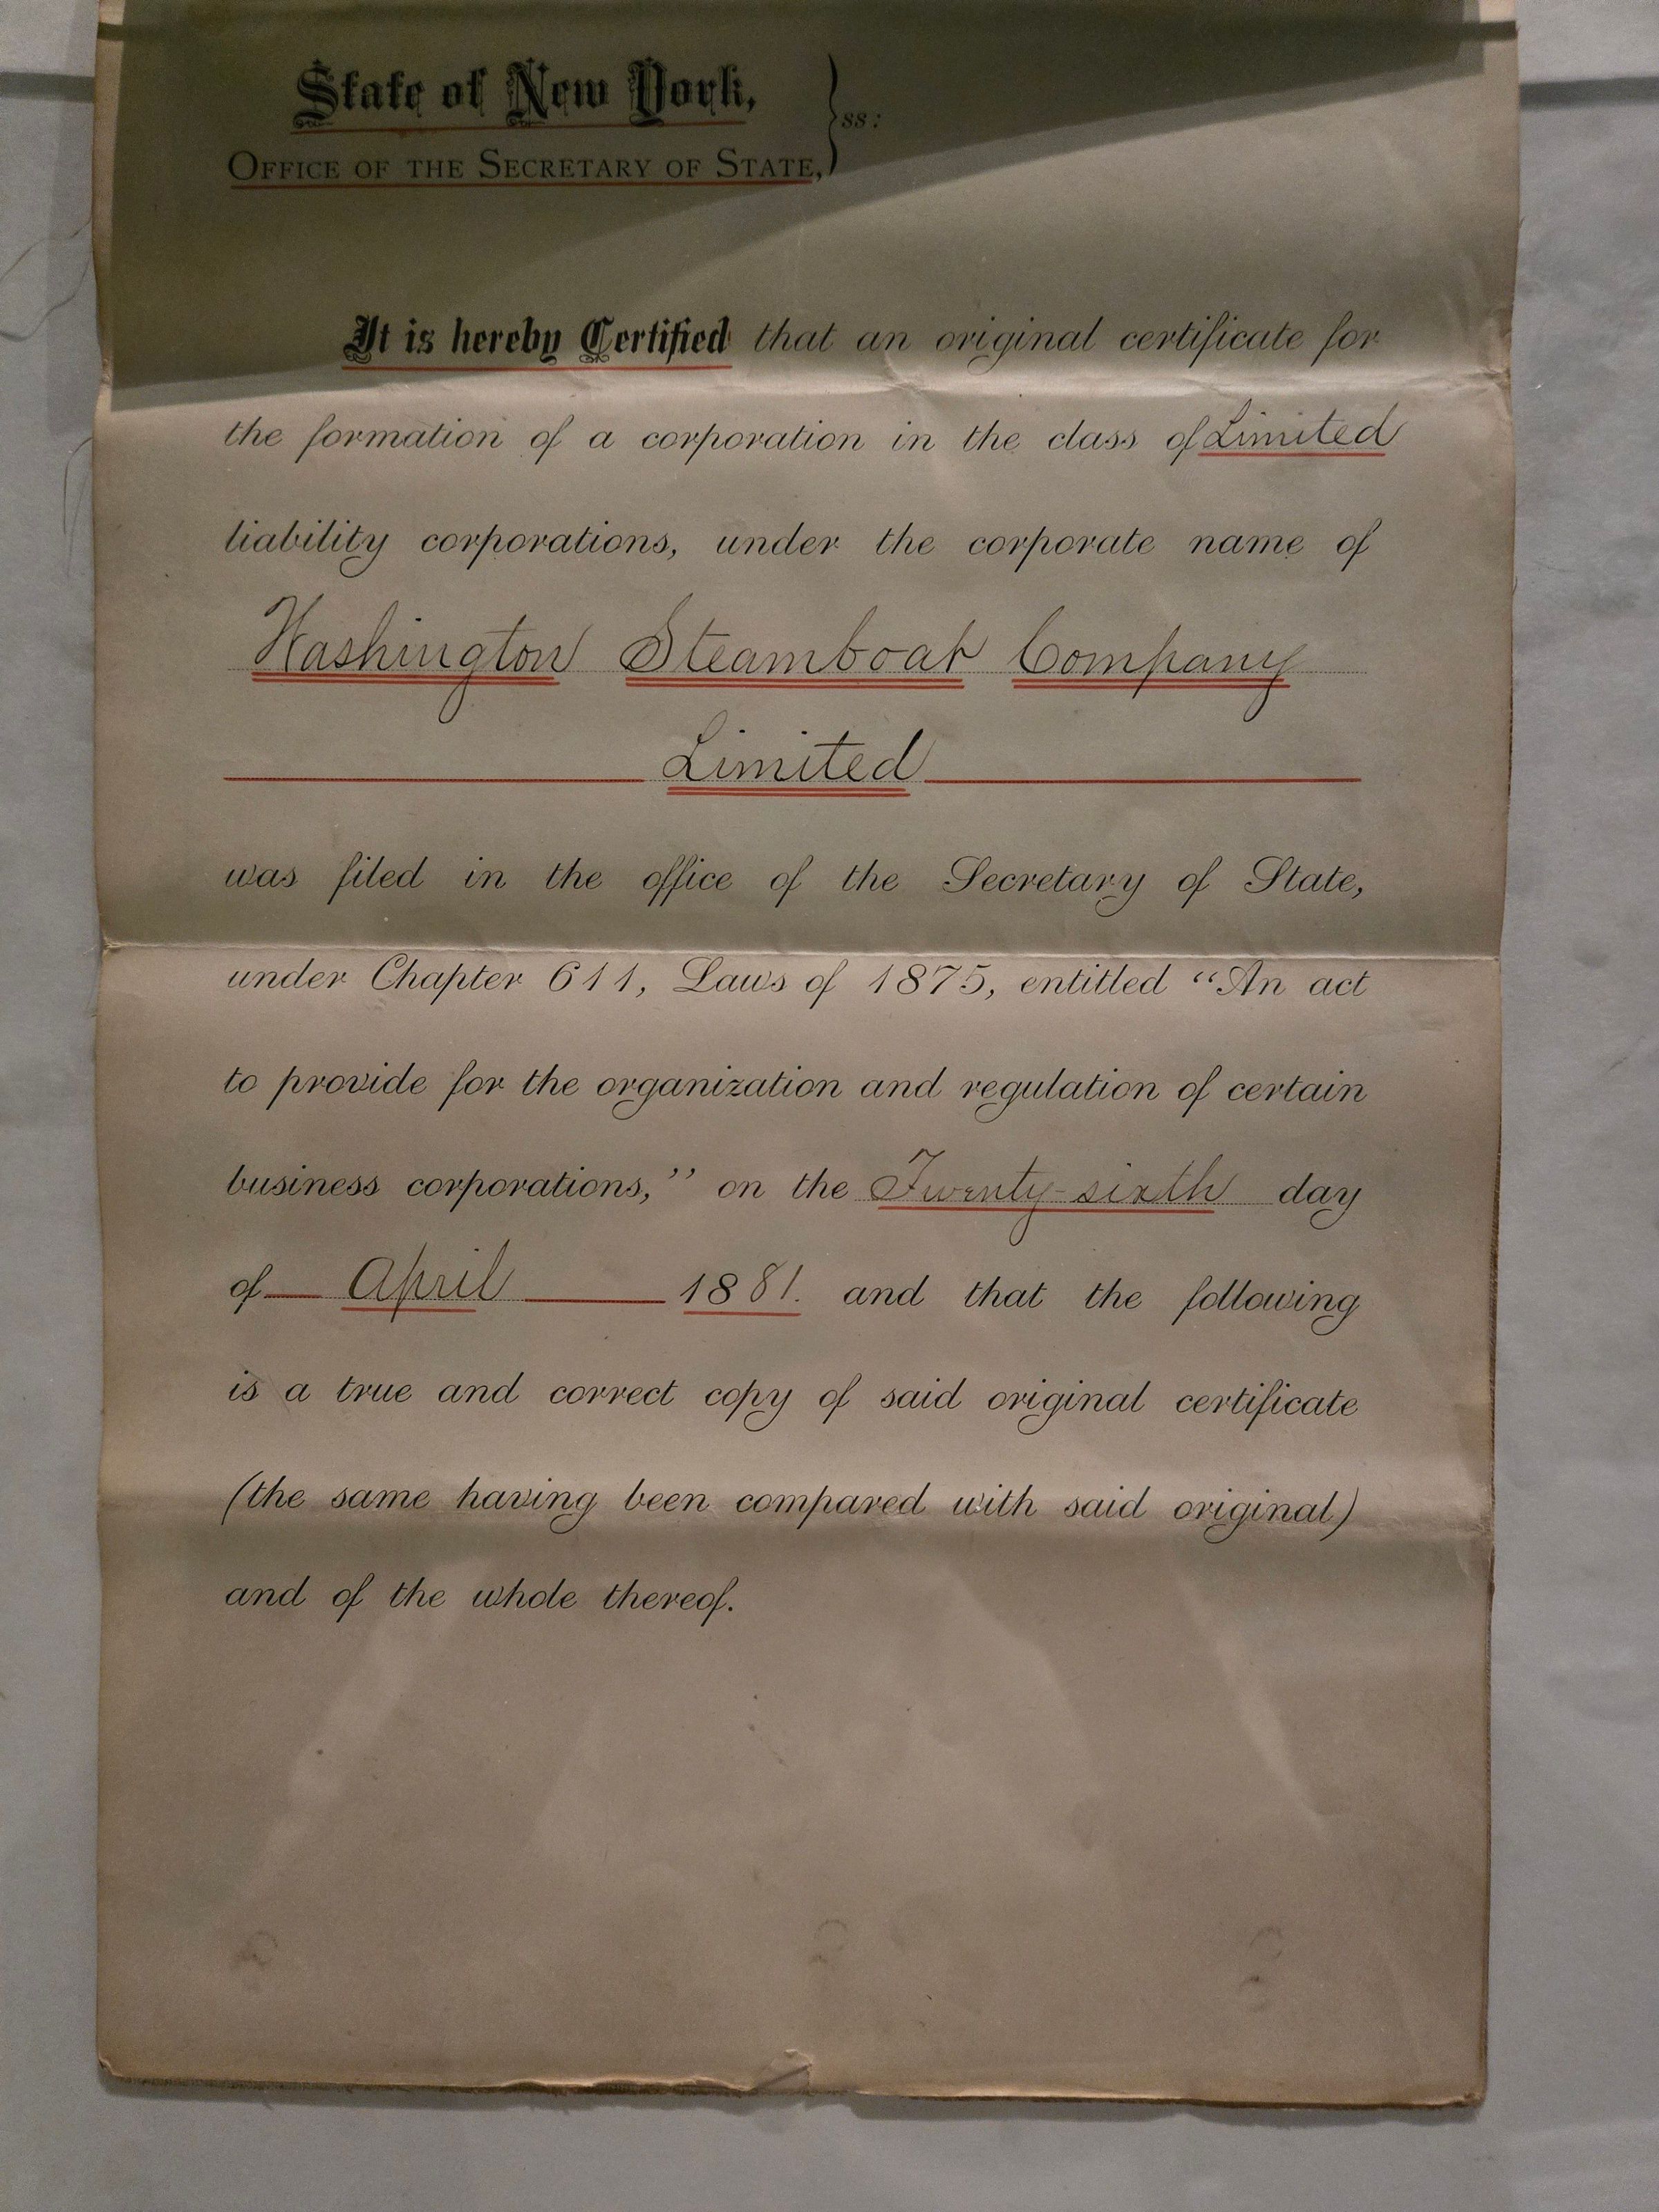 State of New York,
ss:
OFFICE OF THE SECRETARY OF STATE,
It is hereby Certified that an original certificate for
the formation of a corporation in the class of Limited
liability corporations, under the corporate name of
Washington Steamboat Company
Limited
was filed in the office of the Secretary of State,
under Chapter 611, Laws of 1875, entitled "An act
to provide for the organization and regulation of certain
business corporations," on the Twenty-sixth day
of April 1881. and that the following
is a true and correct copy of said original certificate
(the same having been compared with said original)
and of the whole thereof.